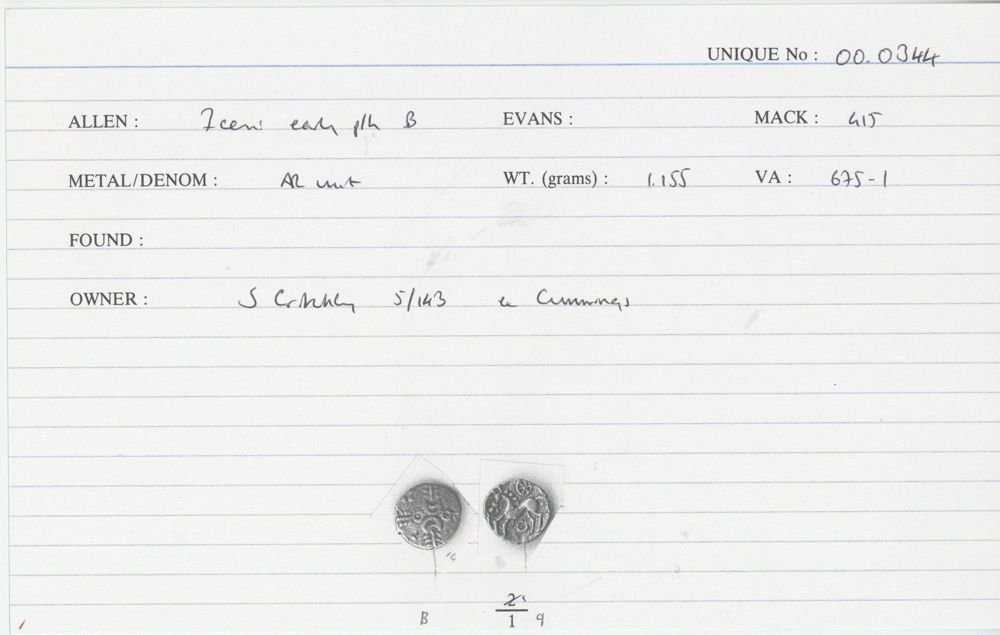 UNIQUE No : 00.0344
ALLEN : Iceni early ptn B EVANS : MACK : 415
METAL/DENOM : AR unit WT. (grams) : 1.155 VA : 675-1
FOUND :
OWNER : S Critchley 5/143 ex Cummings
B 2 9
1